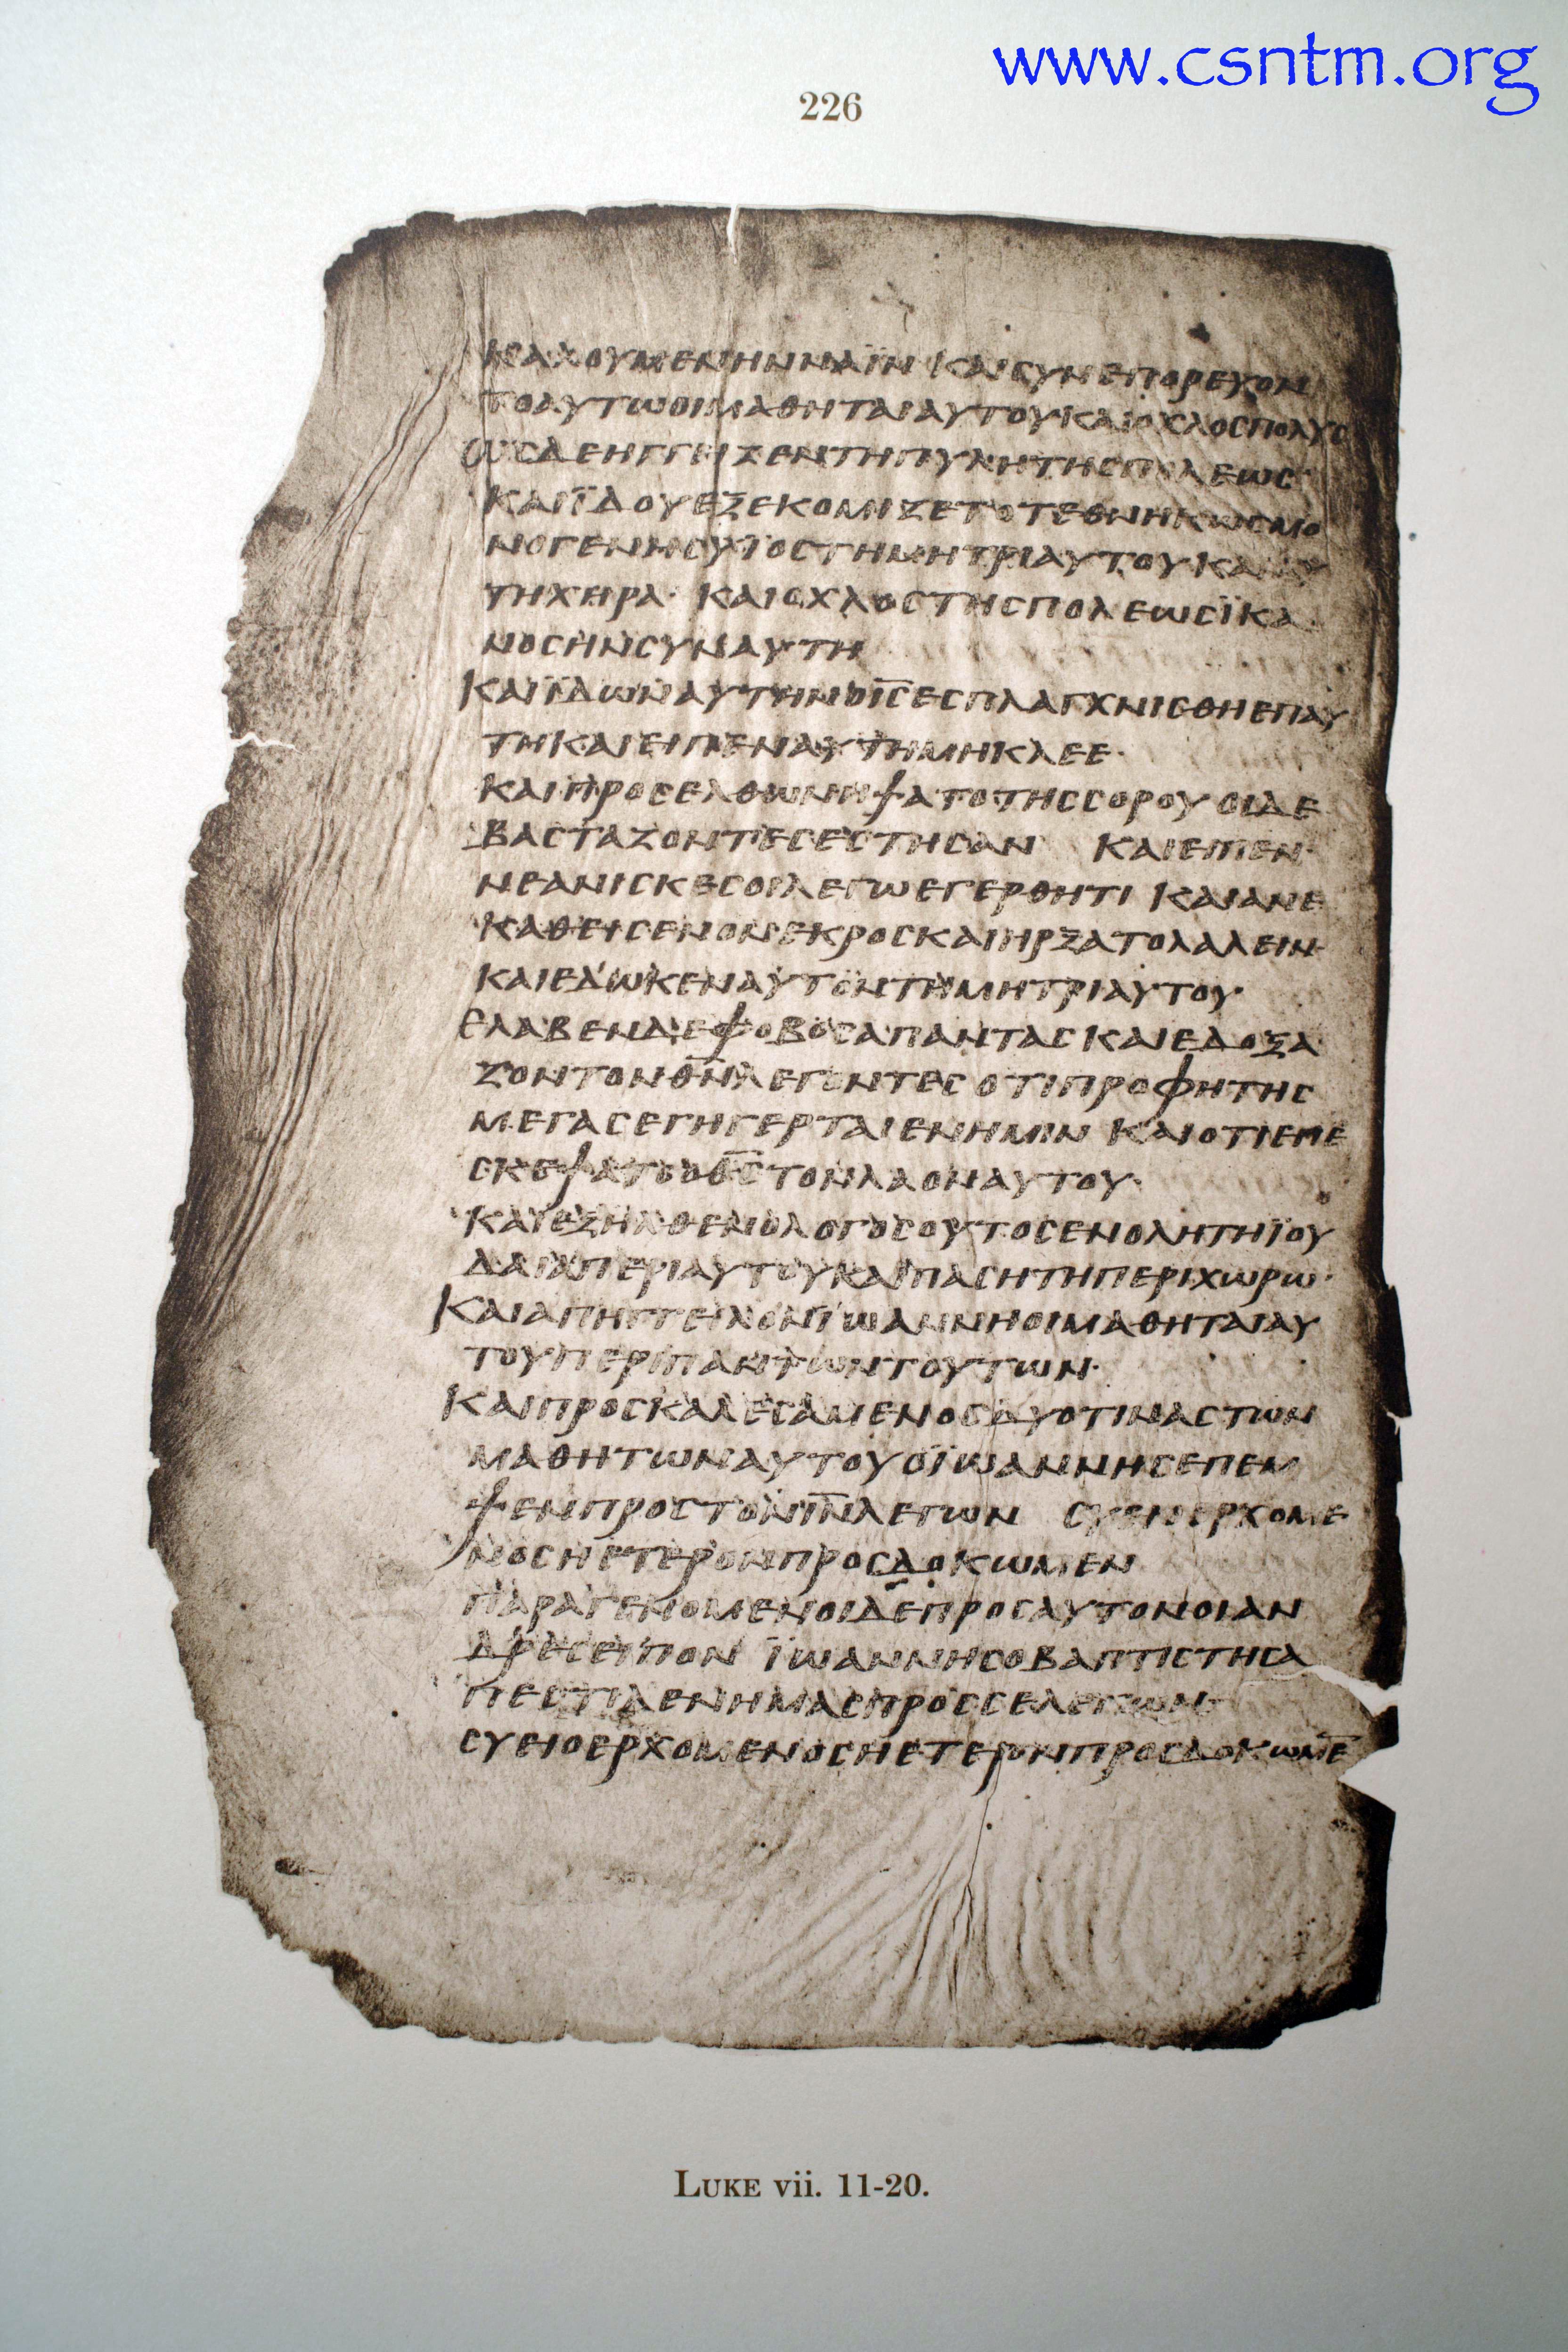 www.csntm.org
226
ΚΑΛΟΥΜΕΝΗΝΝΑΪΝ ΚΑΙϹΥΝΕΠΟΡΕΥΟΝ
ΤΟΑΥΤΩΟΙΜΑΘΗΤΑΙΑΥΤΟΥΚΑΙΟΧΛΟϹΠΟΛΥϹ
ΩϹΔΕΗΓΓΙΖΕΝΤΗΠΥΛΗΤΗϹΠΟΛΕΩϹ·
ΚΑΙΪΔΟΥΕΞΕΚΟΜΙΖΕΤΟΤΕΘΝΗΚΩϹΜΟ
ΝΟΓΕΝΗϹΥΪΟϹΤΗΜΗΤΡΙΑΥΤΟΥ
ΤΗΧΗΡΑ· ΚΑΙΟΧΛΟϹΤΗϹΠΟΛΕΩϹΪΚΑ
ΝΟϹΗΝϹΥΝΑΥΤΗ
ΚΑΙΪΔΩΝΑΥΤΗΝΟΙ̅Ϲ̅ΕϹΠΛΑΓΧΝΙϹΘΗΕΠΑΥ
ΤΗΚΑΙΕΙΠΕΝΑΥΤΗΜΗΚΛΕΕ·
ΚΑΙΠΡΟϹΕΛΘΩΝΗΨΑΤΟΤΗϹϹΟΡΟΥ ΟΙΔΕ
ΒΑϹΤΑΖΟΝΤΕϹΕϹΤΗϹΑΝ ΚΑΙΕΙΠΕΝ·
ΝΕΑΝΙϹΚΕϹΟΙΛΕΓΩΕΓΕΡΘΗΤΙ ΚΑΙΑΝΕ
ΚΑΘΕΙϹΕΝΟΝΕΚΡΟϹΚΑΙΗΡΞΑΤΟΛΑΛΕΙΝ·
ΚΑΙΕΔΩΚΕΝΑΥΤΟΝΤΗΜΗΤΡΙΑΥΤΟΥ·
ΕΛΑΒΕΝΔΕΦΟΒΟϹΑΠΑΝΤΑϹΚΑΙΕΔΟΞΑ
ΖΟΝΤΟΝΘ̅Ν̅ΛΕΓΟΝΤΕϹ ΟΤΙΠΡΟΦΗΤΗϹ
ΜΕΓΑϹΕΓΗΓΕΡΤΑΙΕΝΗΜΙΝ ΚΑΙΟΤΙΕΠΕ
ϹΚΕΨΑΤΟΟΘ̅Ϲ̅ΤΟΝΛΑΟΝΑΥΤΟΥ·
ΚΑΙΕΞΗΛΘΕΝΟΛΟΓΟϹΟΥΤΟϹΕΝΟΛΗΤΗΪΟΥ
ΔΑΙΑΠΕΡΙΑΥΤΟΥΚΑΙΠΑϹΗΤΗΠΕΡΙΧΩΡΩ·
ΚΑΙΑΠΗΓΓΕΙΛΟΝΪΩΑΝΝΗΟΙΜΑΘΗΤΑΙΑΥ
ΤΟΥΠΕΡΙΠΑΝΤΩΝΤΟΥΤΩΝ·
ΚΑΙΠΡΟϹΚΑΛΕϹΑΜΕΝΟϹΔΥΟΤΙΝΑϹΤΩΝ
ΜΑΘΗΤΩΝΑΥΤΟΥΟΪΩΑΝΝΗϹΕΠΕΜ
ΨΕΝΠΡΟϹΤΟΝΙ̅Ν̅ΛΕΓΩΝ ϹΥ ΕΡΧΟΜΕ
ΝΟϹΗΕΤΕΡΟΝΠΡΟϹΔΟΚΩΜΕΝ
ΠΑΡΑΓΕΝΟΜΕΝΟΙΔΕΠΡΟϹΑΥΤΟΝΟΙΑΝ
ΔΡΕϹΕΙΠΟΝ ΪΩΑΝΝΗϹΟΒΑΠΤΙϹΤΗϹΑ
ΠΕϹΤΙΛΕΝΗΜΑϹΠΡΟϹϹΕΛΕΓΩΝ·
ϹΥΕΙΟΕΡΧΟΜΕΝΟϹΗΕΤΕΡΟΝΠΡΟϹΔΟΚΩΜΕ̅
LUKE vii. 11-20.